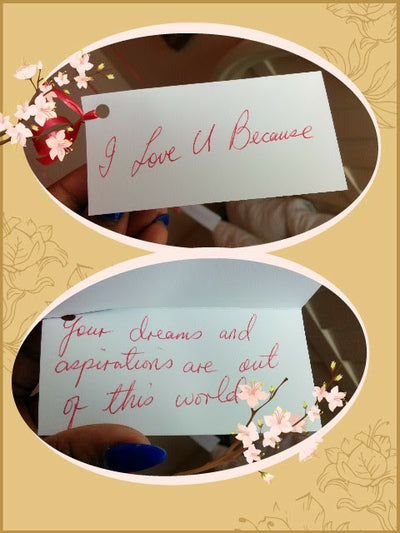 I Love U Because
Your dreams and
aspirations are out
of this world